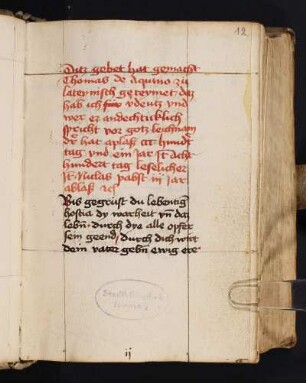 12
Ditz gebet hat gemacht
Thomas de Aquino zu
lateynisch getexmet daz
hab ich
wer ez andechticklich
spricht vor gotz leichnam
der hat aplaß cc hundt
tag und ein Jar st acht
hundert tag teßelicher
St Niclas pabst iii jar
ablaß ꝛc
Bis gegrüst du lebentig
hostia dy warheit vn̄ daz
lebn̄ durch dye alle opfer
sein geend, durch dich wirt
dem vater gebn̄ ewig ere
ij